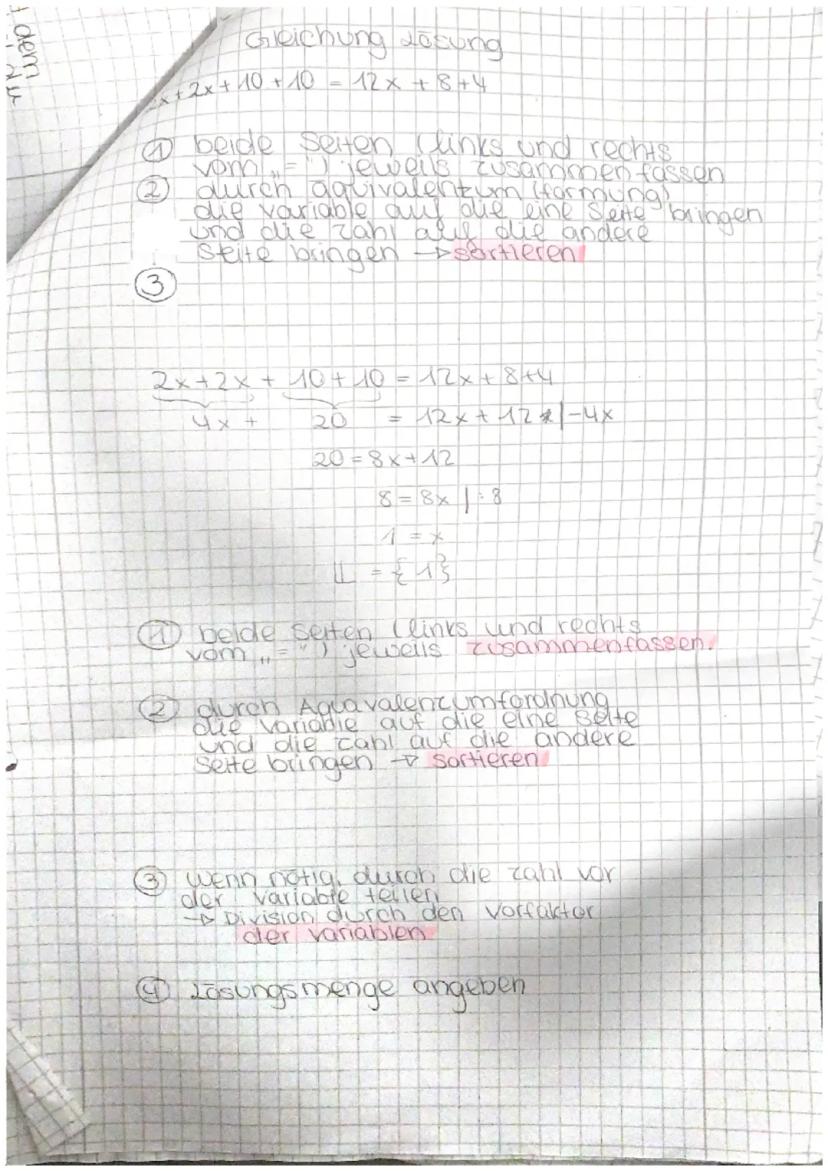 dem
Gleichung Lösung
x+2x+10+10 = 12x+8+4
① beide Seiten (links und rechts
vom „=") jeweils zusammenfassen
② durch äquivalentum (formung)
die variable auf die eine Seite bringen
und die zahl auf die andere
Seite bringen → sortieren
③
2x+2x+10+10 = 12x+8+4
4x + 20 = 12x+12 |-4x
20=8x+12
8=8x |:8
1=x
𝕃 = {1}
① beide Seiten (links und rechts
vom „=") jeweils zusammenfassen.
② durch Aquavalenzumfordnung
die variable auf die eine Seite
und die zahl auf die andere
Seite bringen → sortieren
③ wenn nötig, durch die zahl vor
der variable teilen
→ Division durch den vorfaktor
der variablen
④ Lösungsmenge angeben